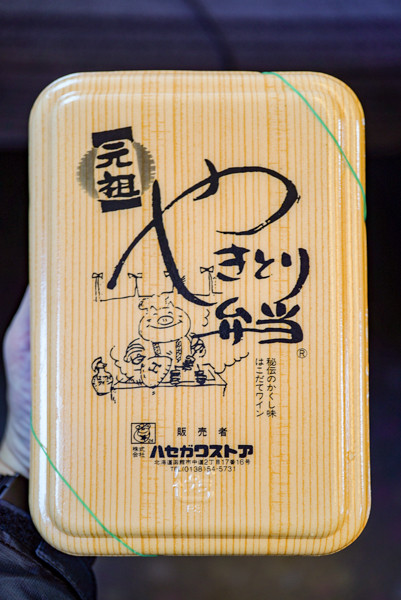 元祖
やきとり
弁当
®
秘伝のかくし味
はこだてワイン
販売者
株式会社 ハセガワストア
北海道函館市中道2丁目17番16号
TEL(0138)54-5731